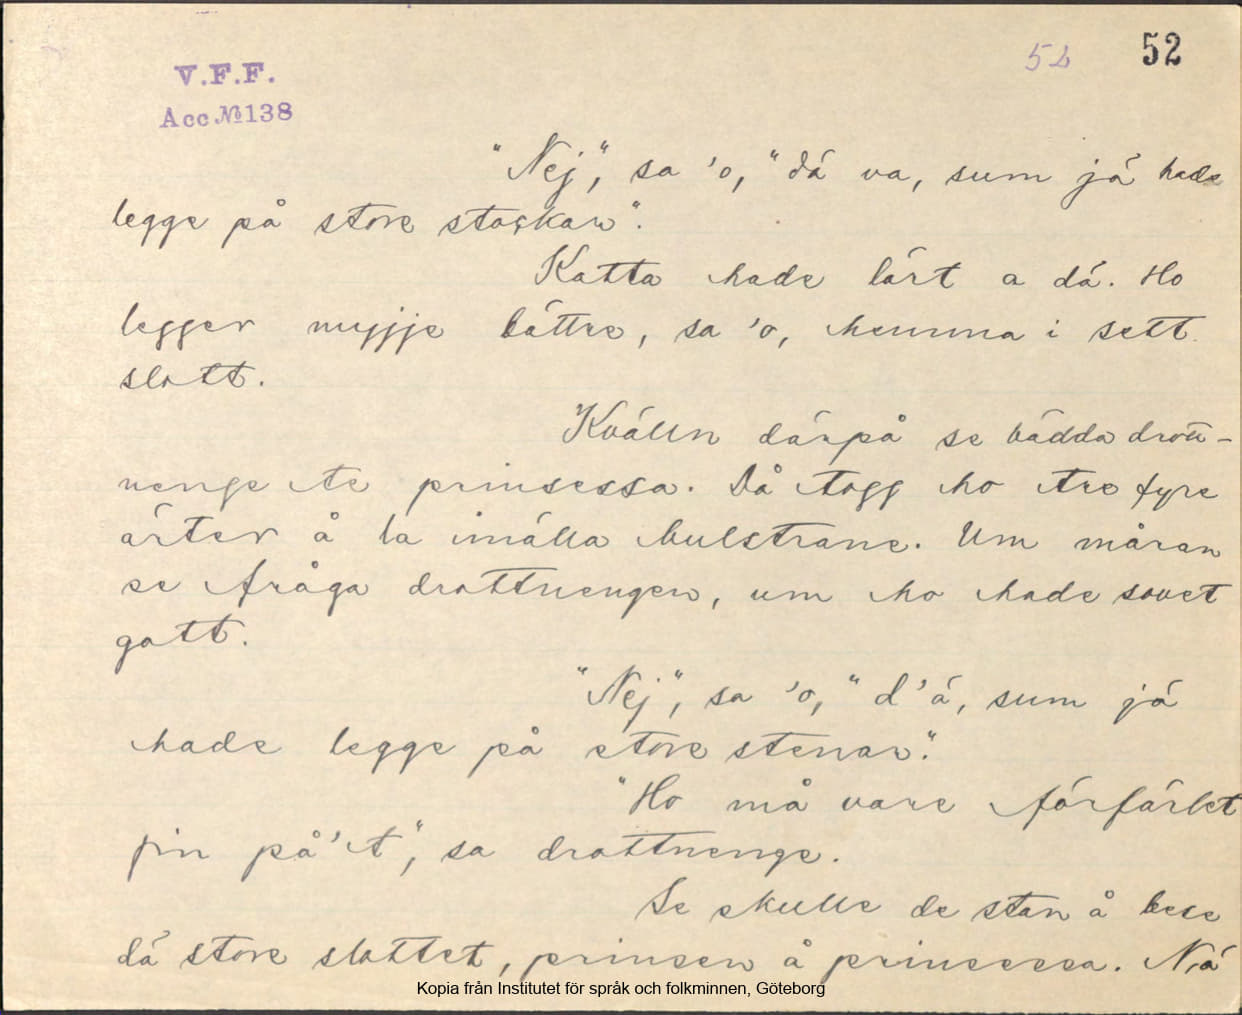 V.F.F.
Acc № 138
52 52
"Nej", sa 'o, "dá va, sum já hade
legge på store stockar".
Katta hade lárt a dá. Ho
legger myjje báttre, sa 'o, hemma i sett
slott.
Kválln dárpå se bádda drott-
nenge te prinsessa. Då togg ho tre fyre
árter å la imálla bulstrane. Um måran
se fråga drottnengen, um ho hade sovet
gott.
"Nej", sa 'o, "d'á, sum já
hade legge på store stenar".
"Ho må vare fórfárlet
fin på't", sa drottnenge.
Se skulle de stan å bese
dá store slottet, prinsen å prinsessa. Ná
Kopia från Institutet för språk och folkminnen, Göteborg